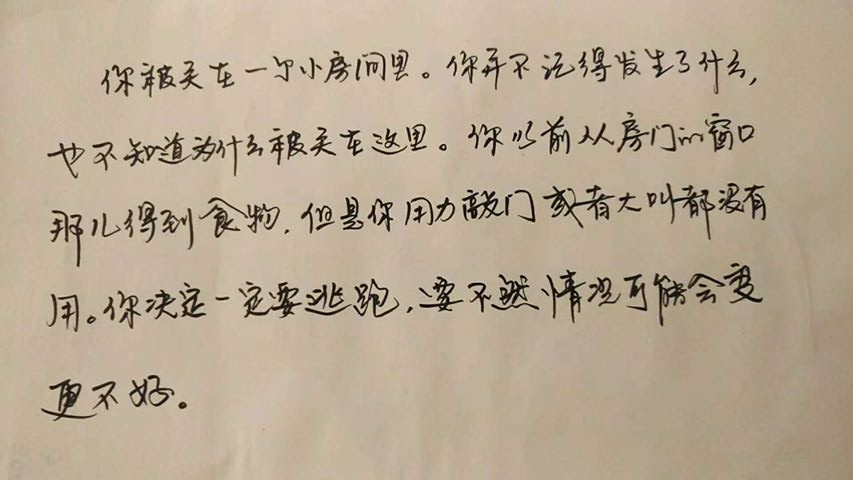 你被关在一个小房间里。你并不记得发生了什么,
也不知道为什么被关在这里。你以前从房门的窗口
那儿得到食物,但是你用力敲门或者大叫都没有
用。你决定一定要逃跑,要不然情况可能会变
更不好。